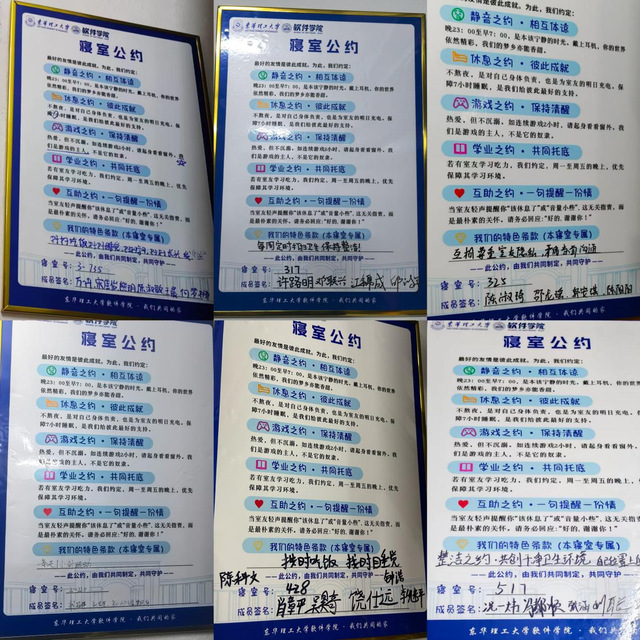 东华理工大学 软件学院
寝室公约
最好的友情是彼此成就。为此,我们约定:
静音之约·相互体谅
晚23:00至早7:00,是本该宁静的时光。戴上耳机,你的世界
依然精彩,我们的梦乡亦能香甜。
休息之约·彼此成就
不熬夜,是对自己身体负责,也是为室友的明日充电。保
障7小时睡眠,是我们给彼此最好的支持。
游戏之约·保持清醒
热爱,但不沉溺。如连续游戏2小时,请起身看看窗外。我
们是游戏的主人,不是它的奴隶。
学业之约·共同托底
若有室友学习吃力,我们约定,周一至周五的晚上,优先
保障其学习环境。
互助之约·一句提醒一份情
当室友轻声提醒你“该休息了”或“音量小些”,这无关指责,而
是最朴素的关怀。请务必回应:“好的,谢谢你!”
我们的特色条款(本寝室专属)
此公约,由我们共同制定,共同守护
寝室号:3-755
成员签名:
东华理工大学软件学院·我们共同的家
东华理工大学 软件学院
寝室公约
最好的友情是彼此成就。为此,我们约定:
静音之约·相互体谅
晚23:00至早7:00,是本该宁静的时光。戴上耳机,你的世界
依然精彩,我们的梦乡亦能香甜。
休息之约·彼此成就
不熬夜,是对自己身体负责,也是为室友的明日充电。保
障7小时睡眠,是我们给彼此最好的支持。
游戏之约·保持清醒
热爱,但不沉溺。如连续游戏2小时,请起身看看窗外。我
们是游戏的主人,不是它的奴隶。
学业之约·共同托底
若有室友学习吃力,我们约定,周一至周五的晚上,优先
保障其学习环境。
互助之约·一句提醒一份情
当室友轻声提醒你“该休息了”或“音量小些”,这无关指责,而
是最朴素的关怀。请务必回应:“好的,谢谢你!”
我们的特色条款(本寝室专属)
每周定时打扫卫生 保持整洁!
此公约,由我们共同制定,共同守护
寝室号:317
成员签名:许路明 邓联兴
东华理工大学软件学院·我们共同的家
最好的友情是彼此成就。为此,我们约定:
静音之约·相互体谅
晚23:00至早7:00,是本该宁静的时光。戴上耳机,你的世界
依然精彩,我们的梦乡亦能香甜。
休息之约·彼此成就
不熬夜,是对自己身体负责,也是为室友的明日充电。保
障7小时睡眠,是我们给彼此最好的支持。
游戏之约·保持清醒
热爱,但不沉溺。如连续游戏2小时,请起身看看窗外。我
们是游戏的主人,不是它的奴隶。
学业之约·共同托底
若有室友学习吃力,我们约定,周一至周五的晚上,优先
保障其学习环境。
互助之约·一句提醒一份情
当室友轻声提醒你“该休息了”或“音量小些”,这无关指责,而
是最朴素的关怀。请务必回应:“好的,谢谢你!”
我们的特色条款(本寝室专属)
此公约,由我们共同制定,共同守护
寝室号:325
成员签名:
东华理工大学软件学院·我们共同的家
寝室公约
最好的友情是彼此成就。为此,我们约定:
静音之约·相互体谅
晚23:00至早7:00,是本该宁静的时光。戴上耳机,你的世界
依然精彩,我们的梦乡亦能香甜。
休息之约·彼此成就
不熬夜,是对自己身体负责,也是为室友的明日充电。保
障7小时睡眠,是我们给彼此最好的支持。
游戏之约·保持清醒
热爱,但不沉溺。如连续游戏2小时,请起身看看窗外。我
们是游戏的主人,不是它的奴隶。
学业之约·共同托底
若有室友学习吃力,我们约定,周一至周五的晚上,优先
保障其学习环境。
互助之约·一句提醒一份情
当室友轻声提醒你“该休息了”或“音量小些”,这无关指责,而
是最朴素的关怀。请务必回应:“好的,谢谢你!”
我们的特色条款(本寝室专属)
此公约,由我们共同制定,共同守护
寝室号:
成员签名:
东华理工大学软件学院·我们共同的家
寝室公约
最好的友情是彼此成就。为此,我们约定:
静音之约·相互体谅
晚23:00至早7:00,是本该宁静的时光。戴上耳机,你的世界
依然精彩,我们的梦乡亦能香甜。
休息之约·彼此成就
不熬夜,是对自己身体负责,也是为室友的明日充电。保
障7小时睡眠,是我们给彼此最好的支持。
游戏之约·保持清醒
热爱,但不沉溺。如连续游戏2小时,请起身看看窗外。我
们是游戏的主人,不是它的奴隶。
学业之约·共同托底
若有室友学习吃力,我们约定,周一至周五的晚上,优先
保障其学习环境。
互助之约·一句提醒一份情
当室友轻声提醒你“该休息了”或“音量小些”,这无关指责,而
是最朴素的关怀。请务必回应:“好的,谢谢你!”
我们的特色条款(本寝室专属)
按时吃饭 按时睡觉
此公约,由我们共同制定,共同守护
寝室号:428
成员签名: 饶仕远
东华理工大学软件学院·我们共同的家
东华理工大学 软件学院
寝室公约
最好的友情是彼此成就。为此,我们约定:
静音之约·相互体谅
晚23:00至早7:00,是本该宁静的时光。戴上耳机,你的世界
依然精彩,我们的梦乡亦能香甜。
休息之约·彼此成就
不熬夜,是对自己身体负责,也是为室友的明日充电。保
障7小时睡眠,是我们给彼此最好的支持。
游戏之约·保持清醒
热爱,但不沉溺。如连续游戏2小时,请起身看看窗外。我
们是游戏的主人,不是它的奴隶。
学业之约·共同托底
若有室友学习吃力,我们约定,周一至周五的晚上,优先
保障其学习环境。
互助之约·一句提醒一份情
当室友轻声提醒你“该休息了”或“音量小些”,这无关指责,而
是最朴素的关怀。请务必回应:“好的,谢谢你!”
我们的特色条款(本寝室专属)
整洁之约·共创干净卫生环境
此公约,由我们共同制定,共同守护
寝室号:517
成员签名:
东华理工大学软件学院·我们共同的家